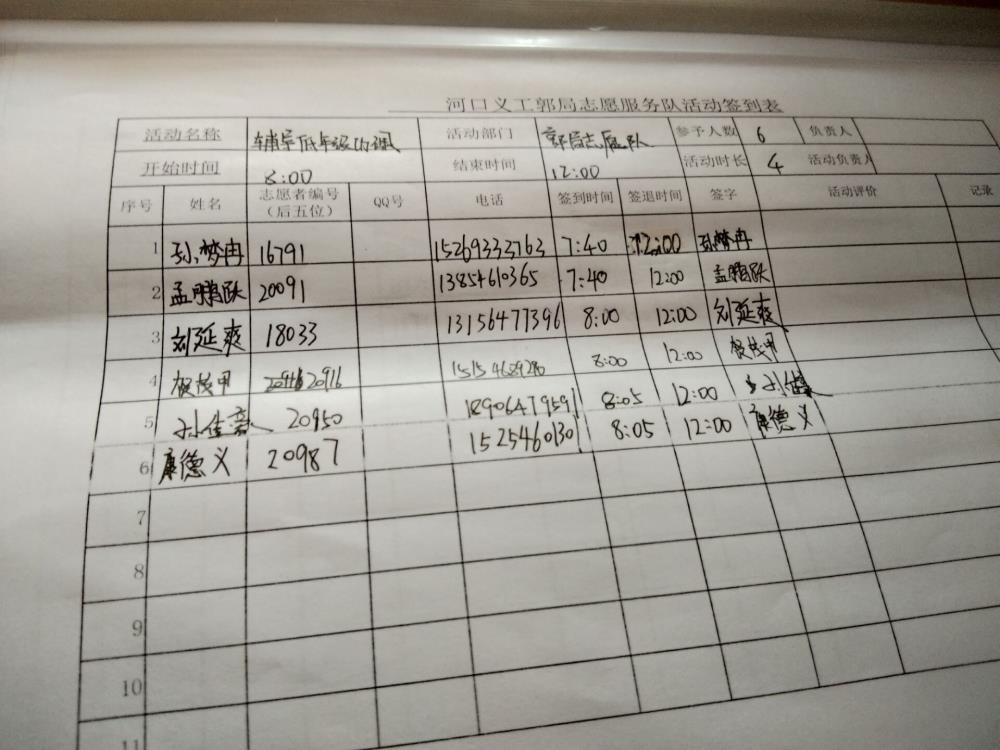 河口义工郭局志愿服务队活动签到表
活动名称 辅导低年级 活动部门 郭局志愿队 参予人数 6 负责人
开始时间 8:00 结束时间 12:00 活动时长 4 活动负责人
序号 姓名 志愿者编号（后五位） QQ号 电话 签到时间 签退时间 签字 活动评价 记录
1 孙梦冉 16791 15269333763 7:40 12:00 孙梦冉
2 孟鹏跃 20091 13854610365 7:40 12:00 孟鹏跃
3 刘延爽 18033 13156477396 8:00 12:00 刘延爽
4 20916 8:00 12:00
5 孙佳豪 20950 18906479591 8:05 12:00 孙佳豪
6 康德义 20987 15254601301 8:05 12:00 康德义
7
8
9
10
11